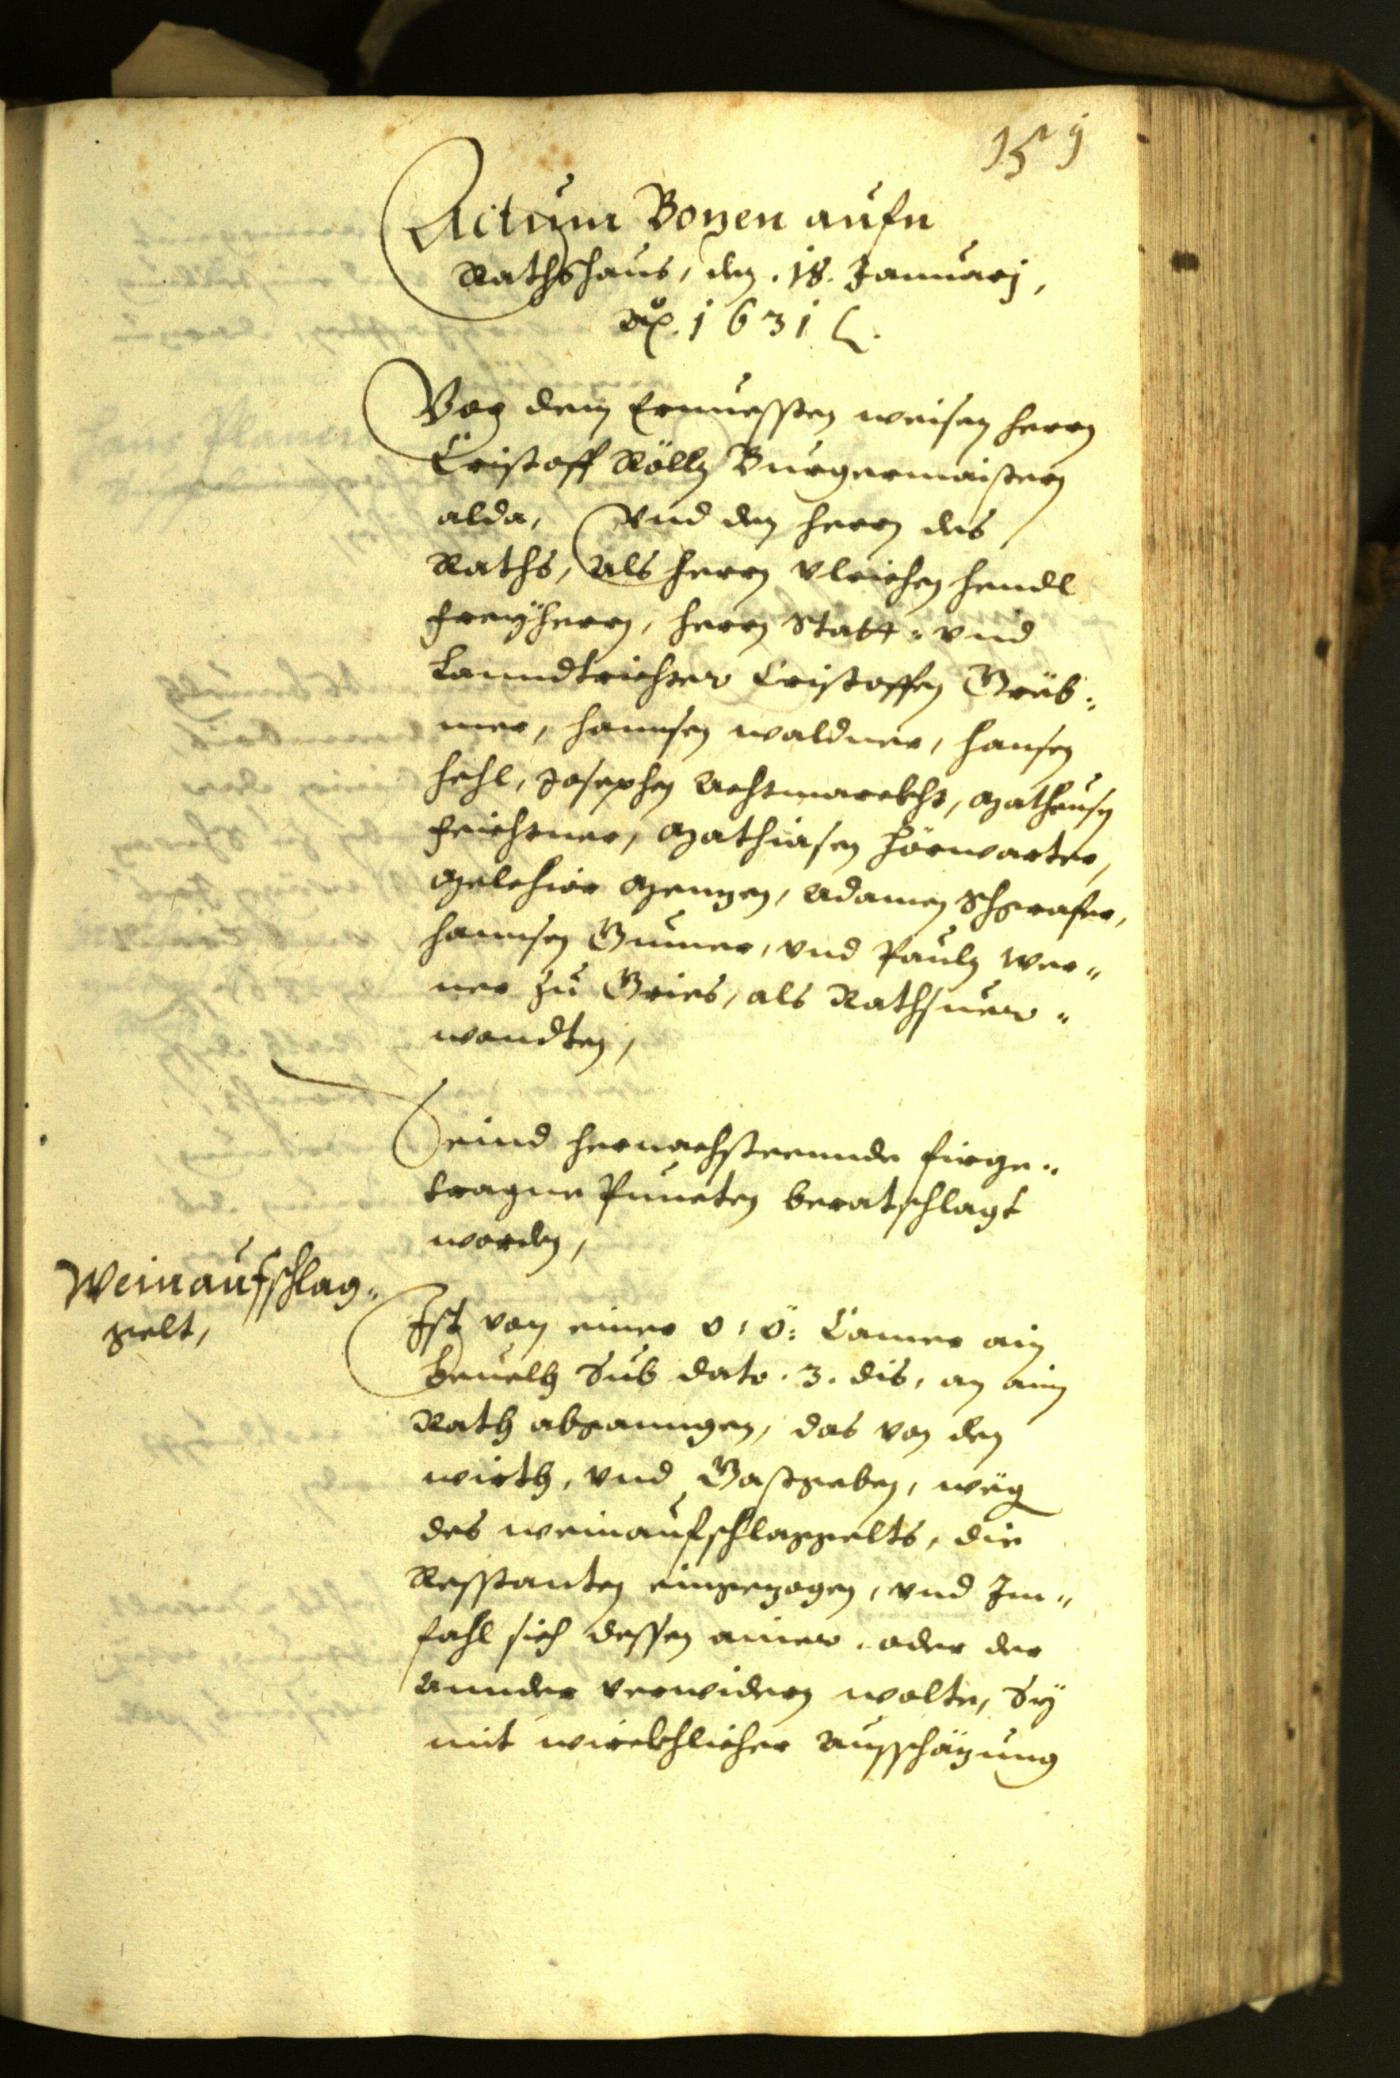 Actum Bozen aufn
Rathshaus, den .18. Januarj,
ao. 1631
Vor dem Ernuessten weisen herrn
Cristoff Röllg Burgermaistern
alda, Vnd den herrn des
Raths, Als herrn Vlrichen hendl
freyherrn, herrn Statt- vnd
Lanndtrichter Cristoffen Grüb-
mer, hannsen waldner, hansen
hehl, Josephen Achtmarckht, Matheusen
feichtner, Mathiasen hörwarter,
Melchior Menzen, Adamen Schgrafer,
hannsen Gumer, vnd Pauln Wer-
ner zu Gries, als Rathsuer-
wandten,
Seind hernachsteennde firge-
tragne Puncten beratschlagt
worden,
Weinaufschlag-
gelt,
Ist von einer o: ö: Camer ain
beuelh Sub dato .3. dis, an ain
Rath abganngen, das von den
wirth, vnd Gastgeben, weg
des weinaufschlaggelts, die
Resstanten eingezogen, vnd Im-
fahl sich dessen ainer oder der
Annder verwidern wolte, Sy
mit wircklicher Ausschäzung